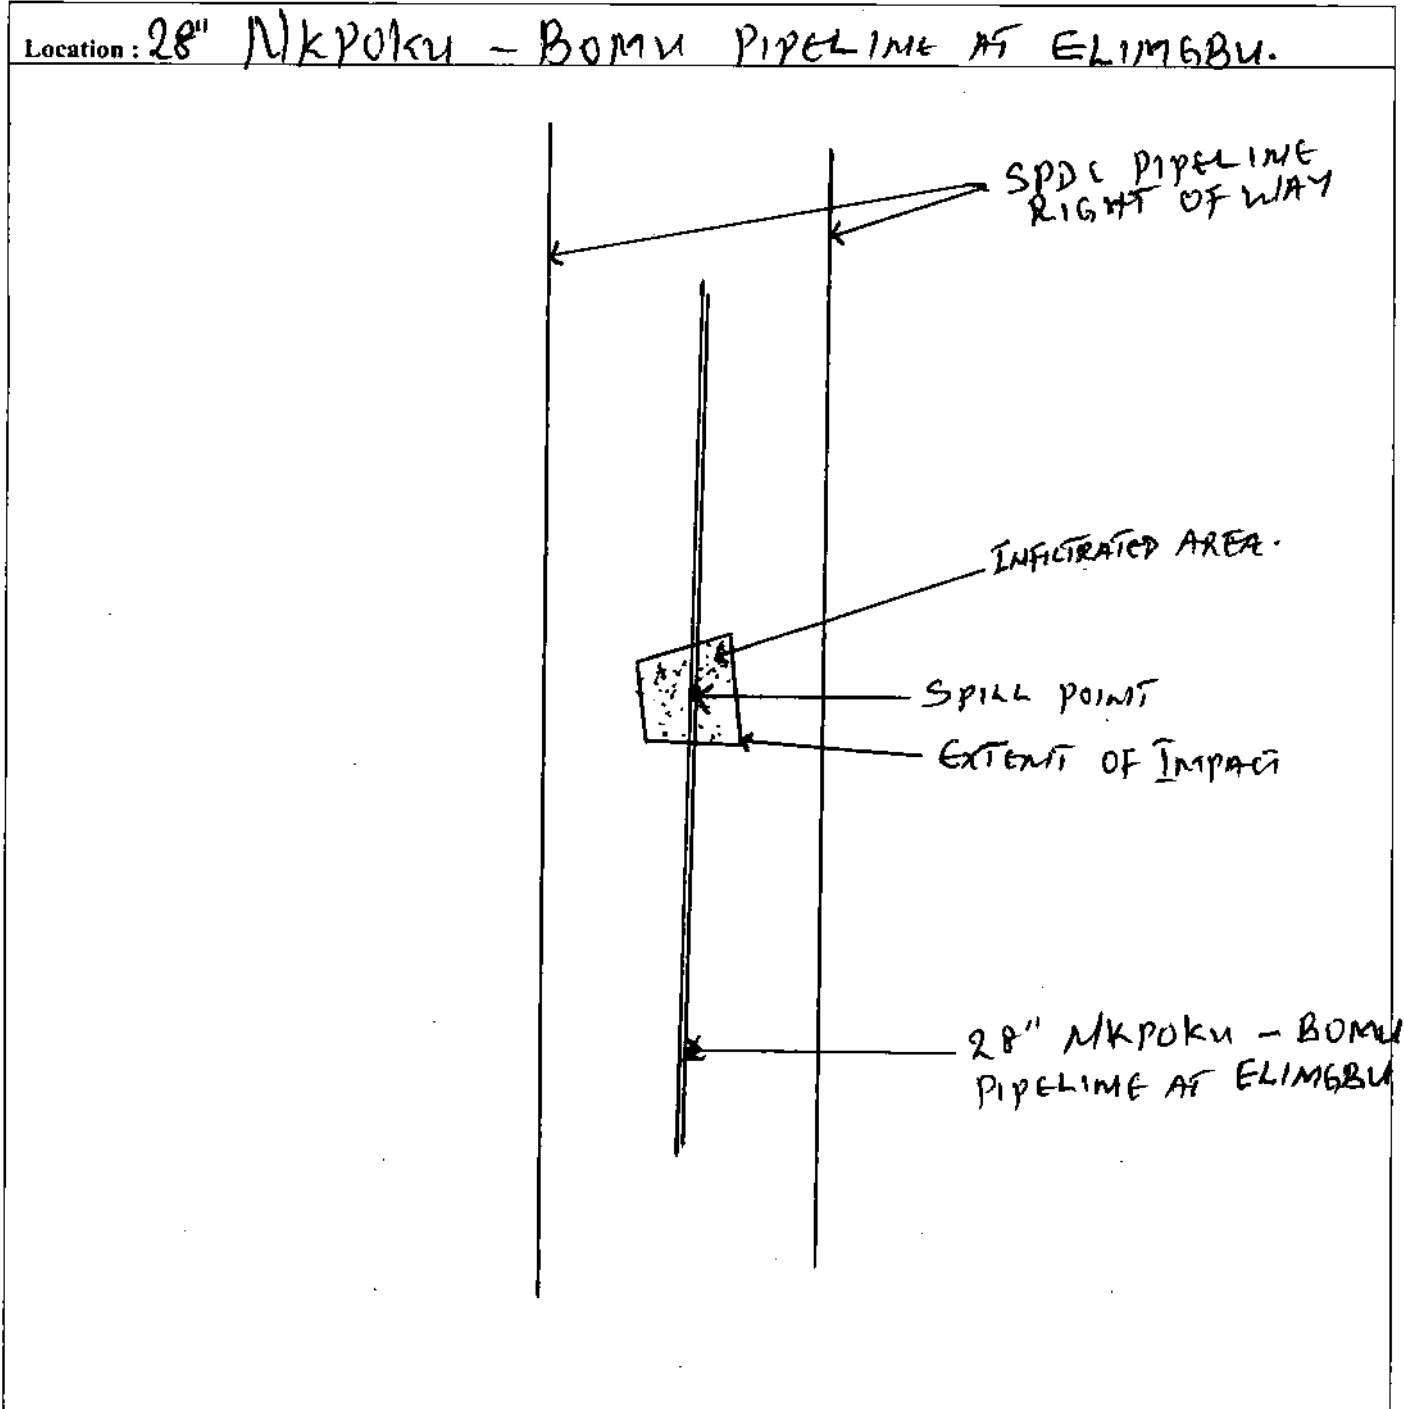 Location : 28" NKPOKU - BOMU PIPELINE AT ELIMGBU.
SPDC PIPELINE
RIGHT OF WAY
INFILTRATED AREA.
SPILL POINT
EXTENT OF IMPACT
28" NKPOKU - BOMU
PIPELINE AT ELIMGBU